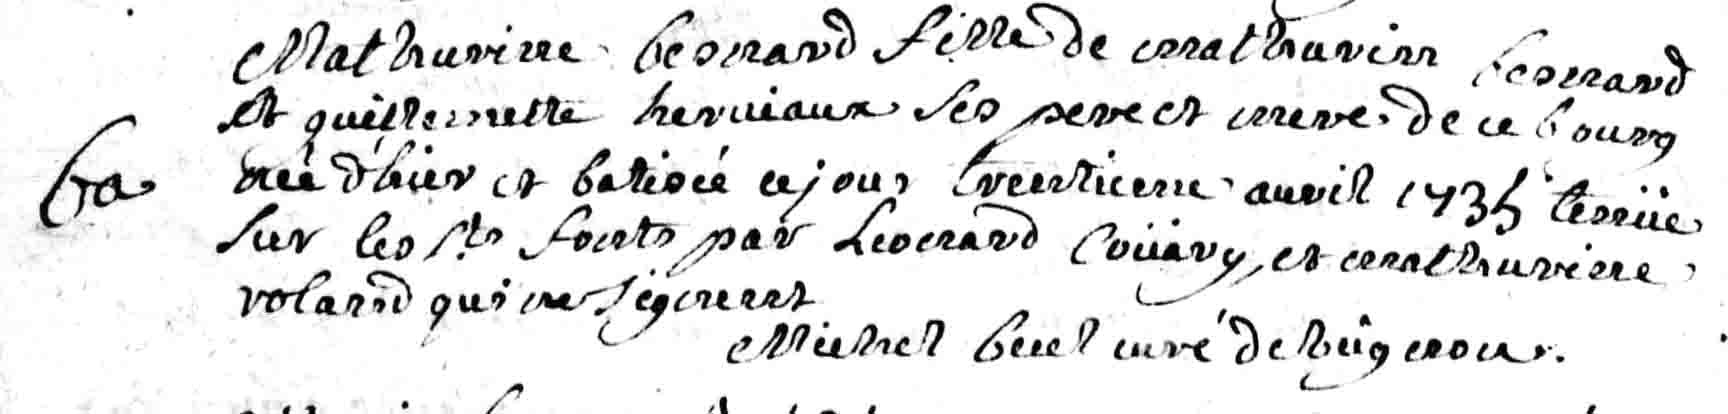 Mathurine besnard fille de mathurin besnard
Et guillemette herviaux ses pere et mere de ce bourg
Ba née d'hier et batisée ce jour trentieme auvril 1735 tenüe
Sur les Sts fonts par Leonard Coüary, et mathurine
voland qui ne signent
Michel buel curé de buignon.